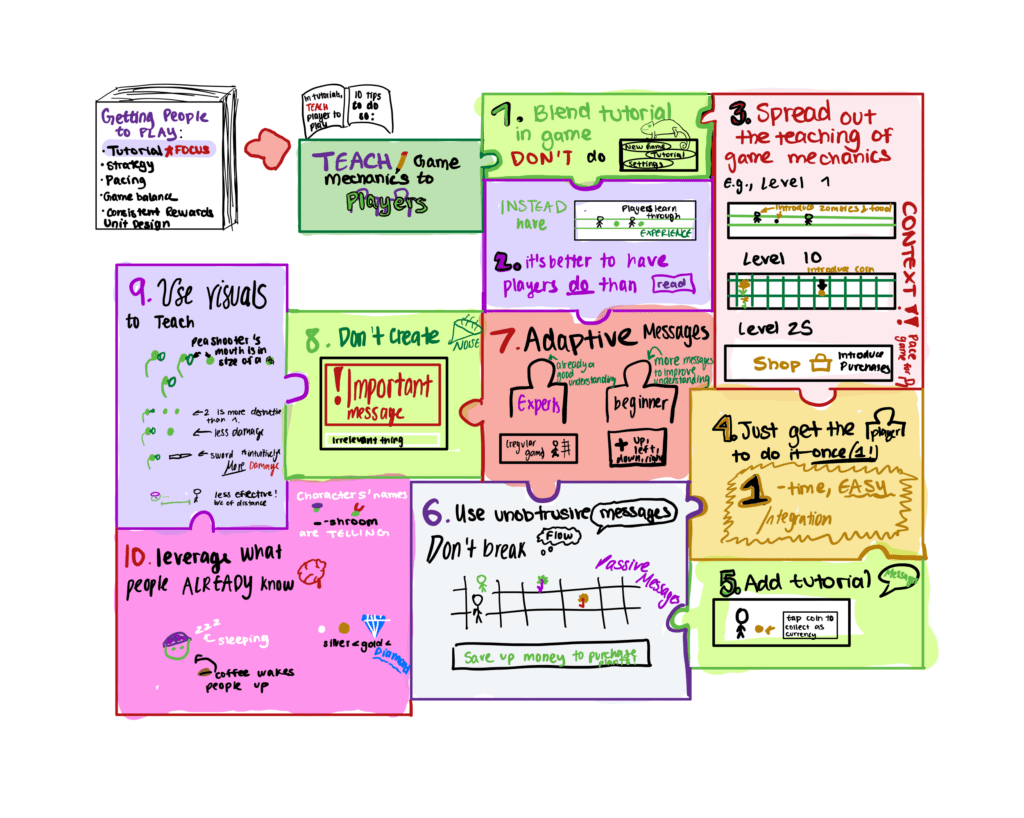 Getting People
to PLAY:
· Tutorial ★FOCUS
· Strategy
· Pacing
· Game balance
· Consistent Rewards
Unit Design
In tutorials,
TEACH
player to
Play
10 TIPS
to do
so:
TEACH! Game
mechanics to
Players
1. Blend tutorial
in game
DON'T do
New Game
Tutorial
Settings
INSTEAD
have
Players learn
through
EXPERIENCE
2. it's better to have
players do than read
3. Spread out
the teaching of
game mechanics
E.g., Level 1
Introduce zombies & food
Level 10
Introduce coin
Level 25
Shop
Introduce
Purchases
CONTEXT!!
Pace
game for
4. Just get the player
to do it once (1!)
1-time, EASY
Integration
5. Add tutorial
Message
tap coin to
collect as
currency
6. Use unobtrusive messages
Don't break Flow
Passive
Messages
Save up money to purchase
plants!
7. Adaptive Messages
already a
good
understanding
more messages
to improve
understanding
Experts
beginner
(regular
game)
+ up,
left,
down, right
8. Don't create
NOISE
! Important
message
Irrelevant thing
9. Use visuals
to Teach
Peashooter's
mouth is in
size of a
← 2 is more destructive
than 1.
← less damage
← sword = intuitively
More Damage
less effective!
b/c of distance
10. leverage what
people ALREADY know
Characters' names
--shroom
are TELLING
zzz
sleeping
coffee wakes
people up
silver < gold <
Diamond